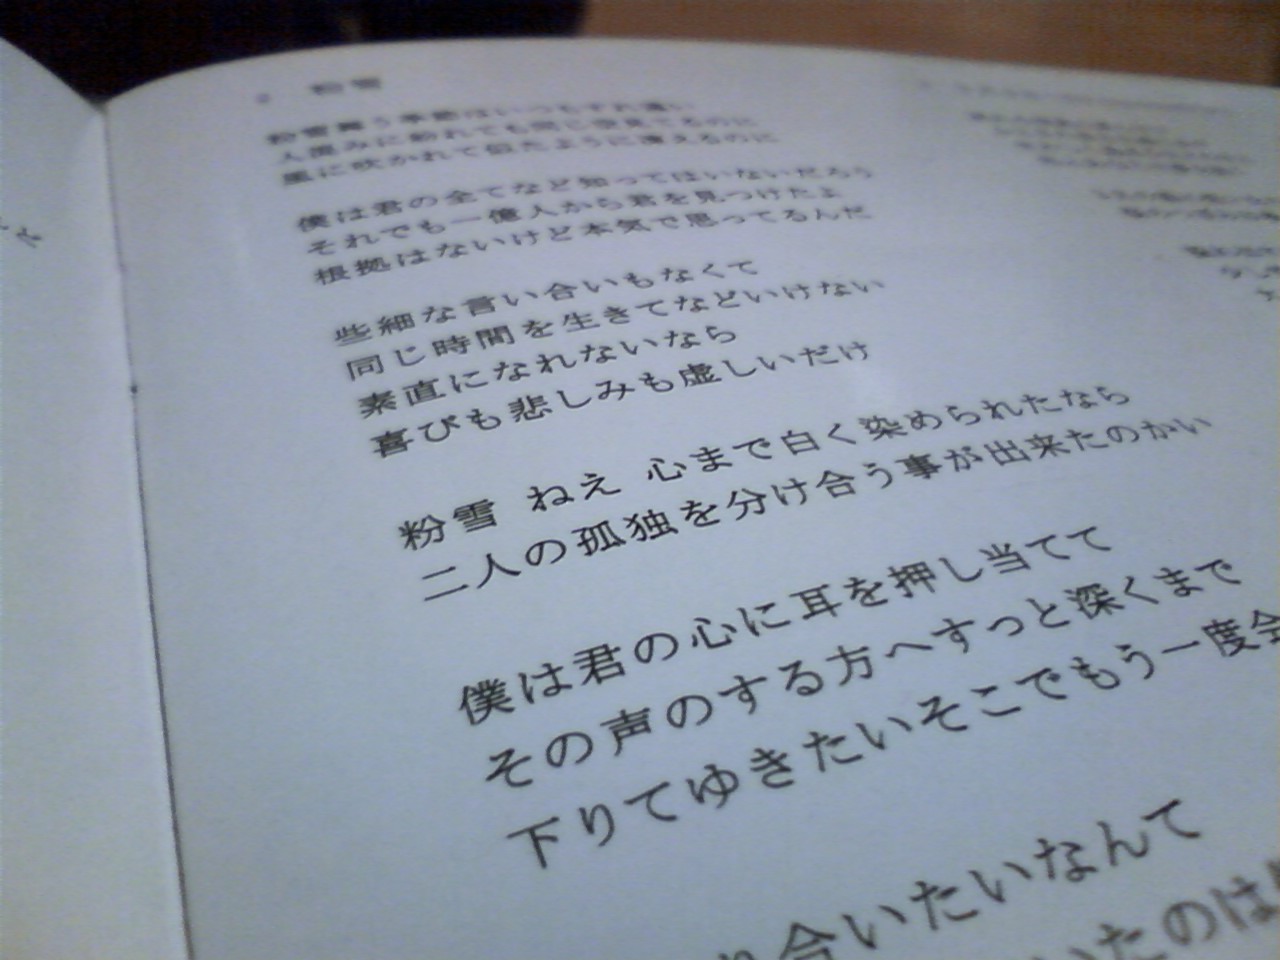 粉雪
粉雪舞う季節はいつもすれ違い
人混みに紛れても同じ空見てるのに
風に吹かれて似たように凍えるのに
僕は君の全てなど知ってはいないだろう
それでも一億人から君を見つけたよ
根拠はないけど本気で思ってるんだ
些細な言い合いもなくて
同じ時間を生きてなどいけない
素直になれないなら
喜びも悲しみも虚しいだけ
粉雪 ねえ 心まで白く染められたなら
二人の孤独を分け合う事が出来たのかい
僕は君の心に耳を押し当てて
その声のする方へすっと深くまで
下りてゆきたいそこでもう一度会
り合いたいなんて
いたのは